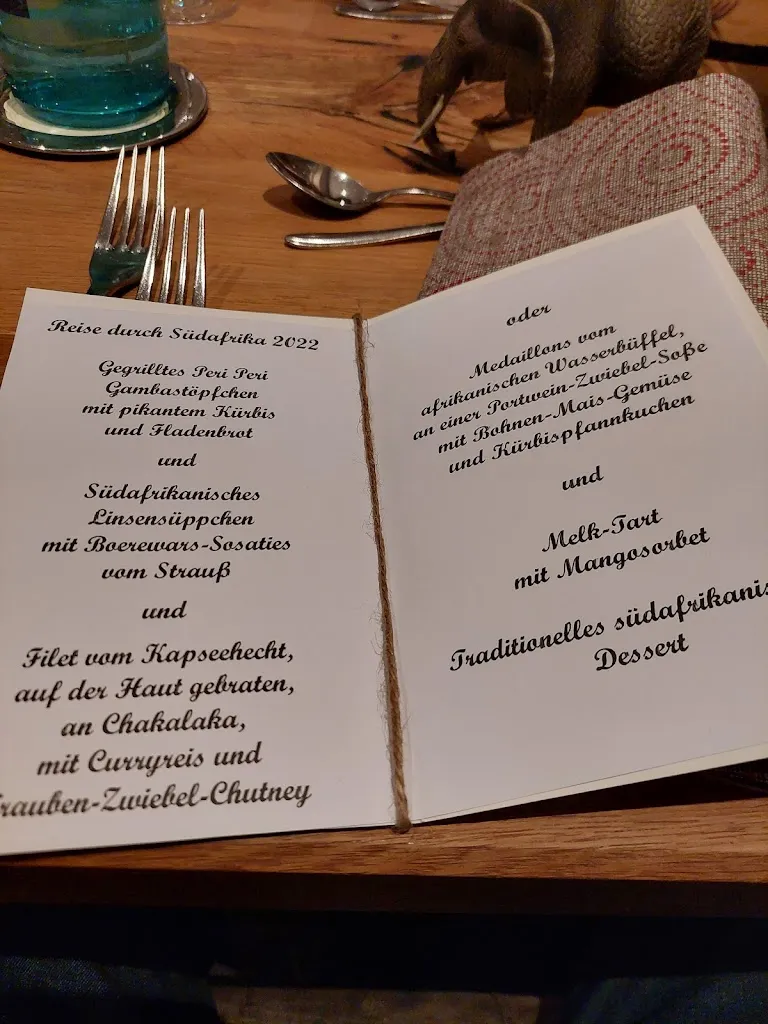 Reise durch Südafrika 2022
Gegrilltes Peri Peri
Gambastöpfchen
mit pikantem Kürbis
und Fladenbrot
und
Südafrikanisches
Linsensüppchen
mit Boerewars-Sosaties
vom Strauß
und
Filet vom Kapseehecht,
auf der Haut gebraten,
an Chakalaka,
mit Curryreis und
rauben-Zwiebel-Chutney
oder
Medaillons vom
afrikanischen Wasserbüffel,
an einer Portwein-Zwiebel-Soße
mit Bohnen-Mais-Gemüse
und Kürbispfannkuchen
und
Melk-Tart
mit Mangosorbet
Traditionelles südafrikanis
Dessert